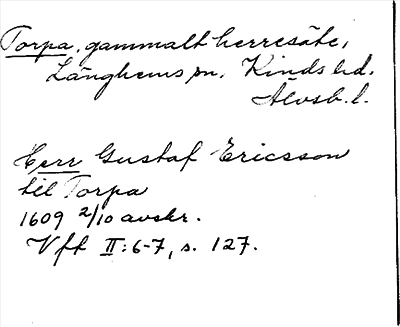 Torpa, gammalt herresäte,
Länghems sn. Kinds hd.
Älvsb. l.
Herr Gustaf Ericsson
till Torpa
1609 2/10 avskr.
Vft II: 6-7, s. 127.